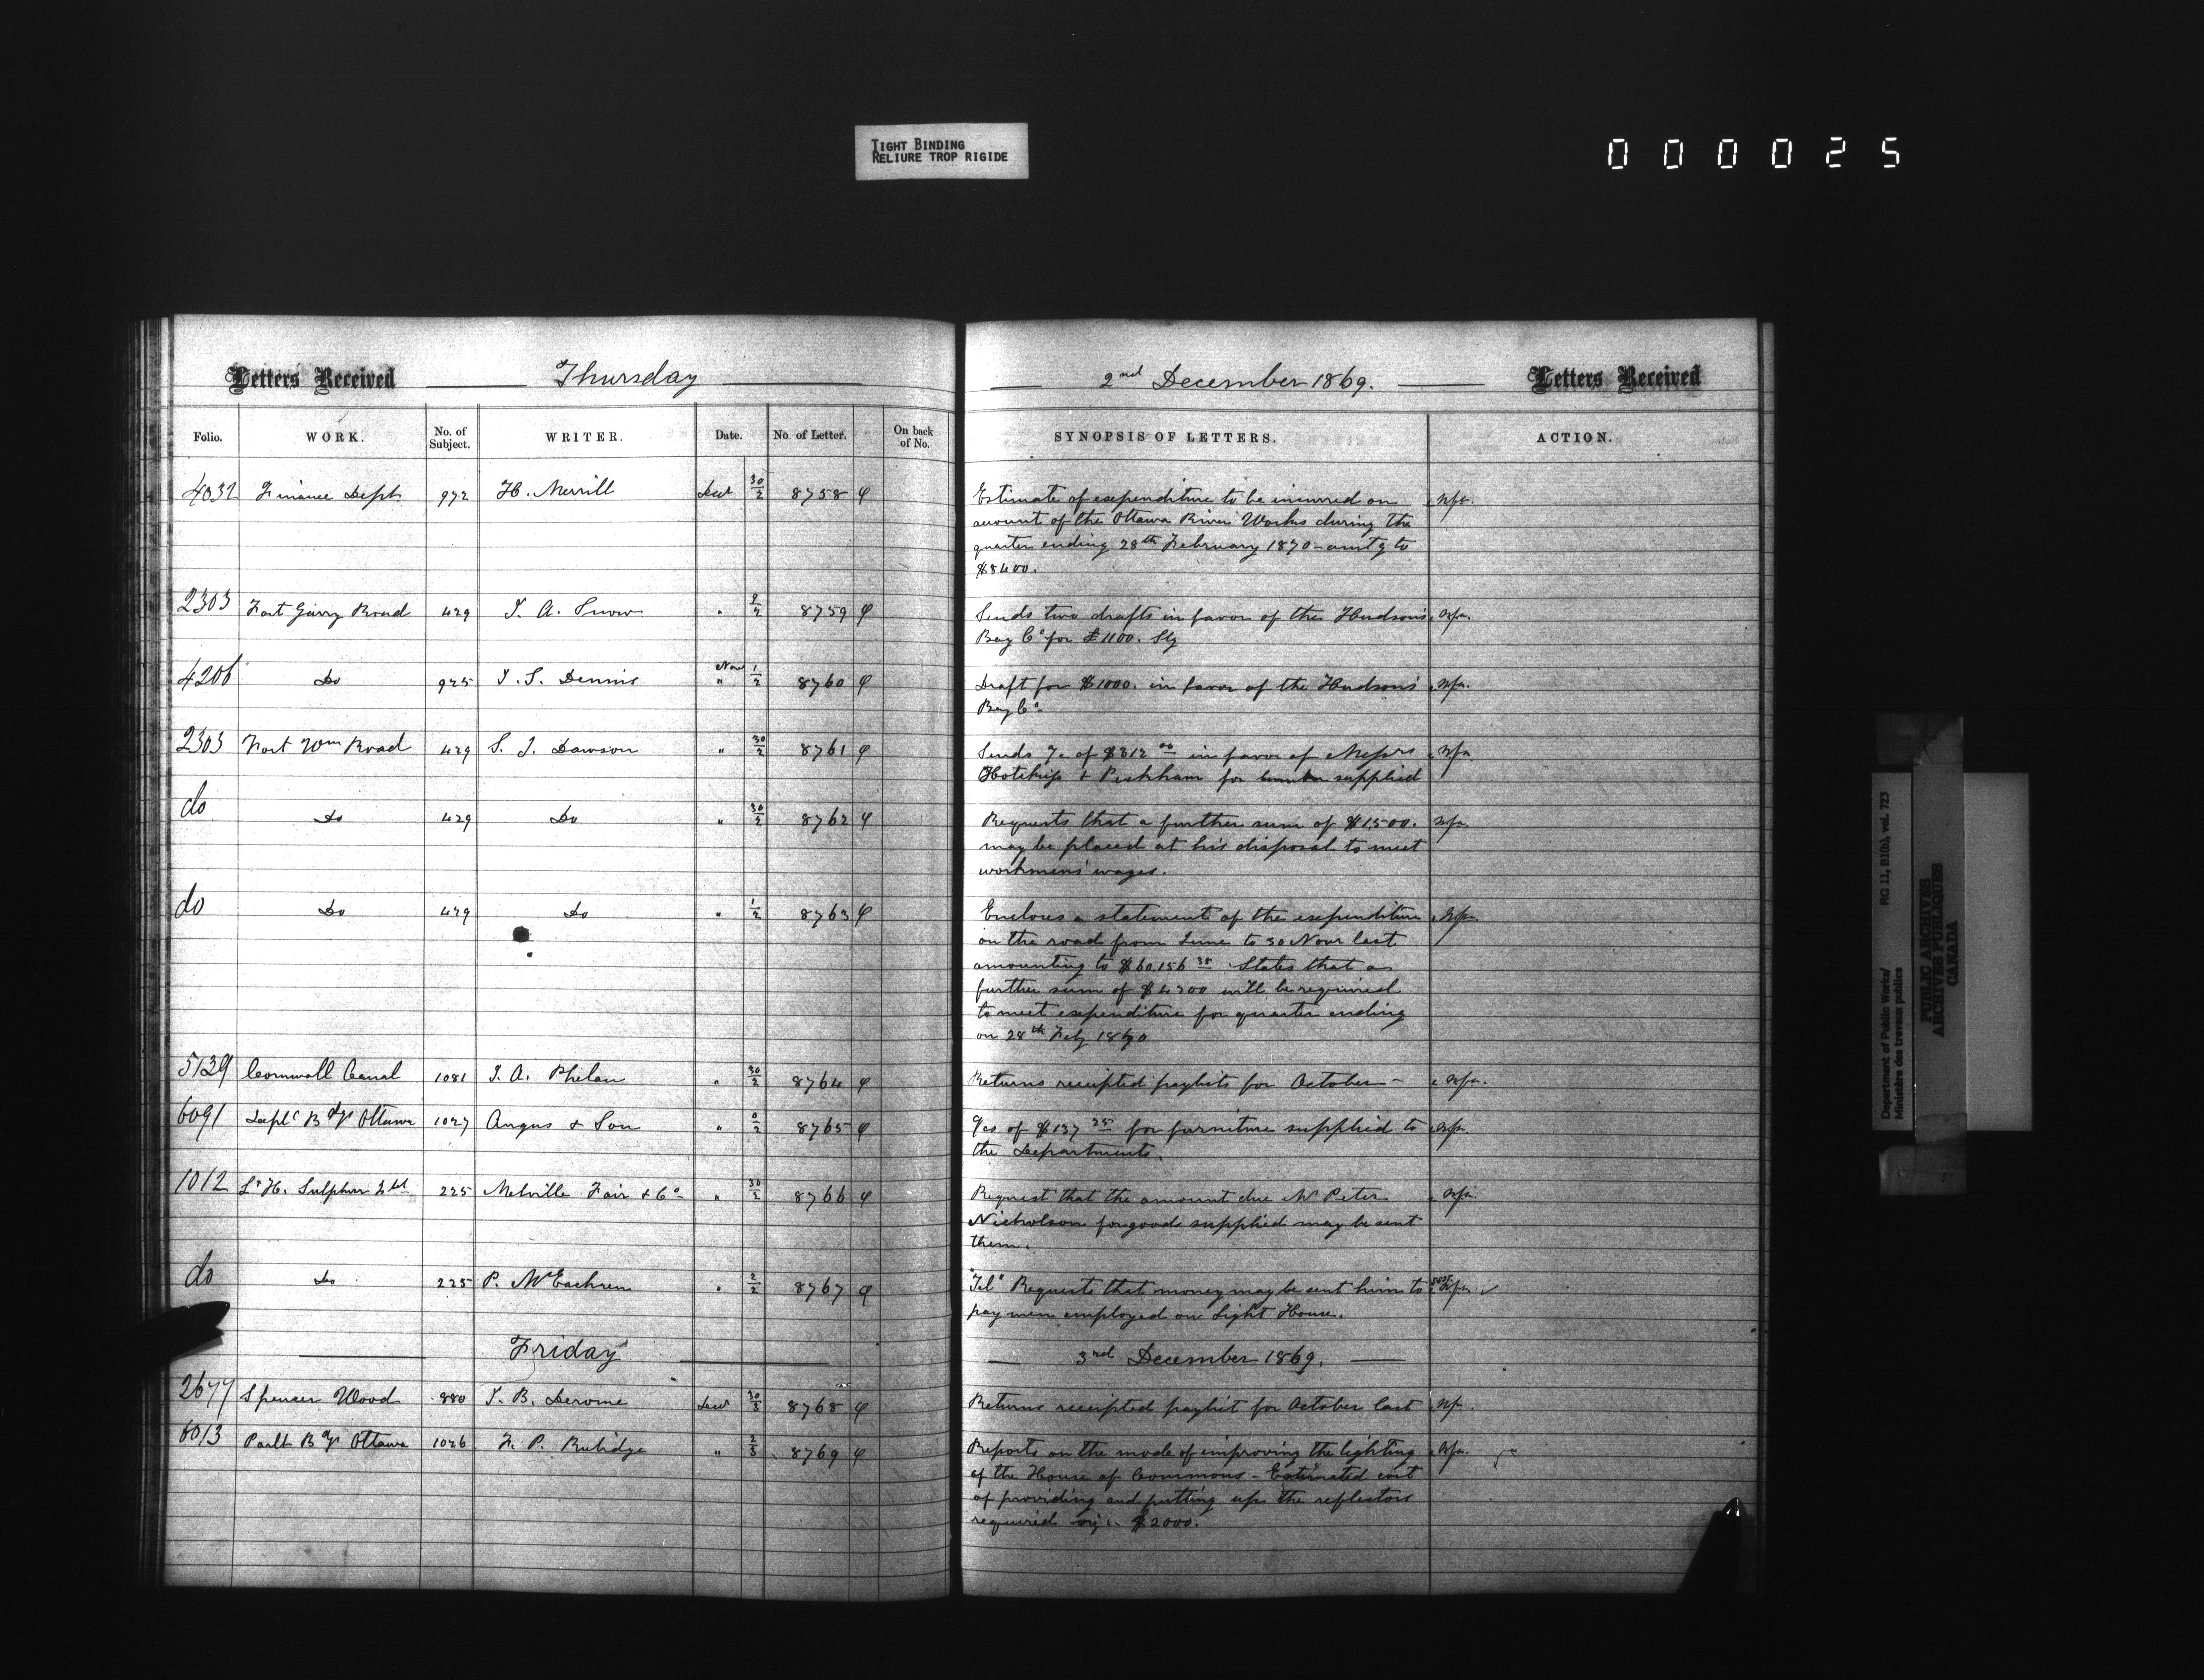 TIGHT BINDING
RELIURE TROP RIGIDE
000025
Letters Received Thursday 2nd December 1869. Letters Received
Folio. WORK. No. of Subject. WRITER. Date. No. of Letter. On back of No. SYNOPSIS OF LETTERS. ACTION.
4032 Finance Dept 972 H. Merrill 30/2 8758 Estimate of expenditure to be incurred on
account of the Ottawa River Works during the
quarter ending 28th February 1870 - amtg to
$8400.
2303 Fort Garry Road 429 J. A. Snow " 2/2 8759 Sends two drafts in favor of the Hudson's
Bay Co for £1100. Stg
4206 Do 925 J. S. Dennis Nov " 1/2 8760 Draft for $1000. in favor of the Hudson's
Bay Co
2303 Fort Wm Road 429 S. J. Dawson " 30/2 8761 Sends of $312 00 in favor of Messrs
Hotchkiss & Peckham for supplied
do Do 429 Do " 30/2 8762 Requests that a further sum of $1500.
may be placed at his disposal to meet
workmens' wages.
do Do 429 Do " 1/2 8763 Encloses a statement of the expenditure
on the road from June to 30 Novr last
amounting to $60.156 States that a
further sum of $4200 will be required
to meet expenditure for quarter ending
on 28th Feby 1870
5139 Cornwall Canal 1081 J. A. Phelan " 30/2 8764 Returns receipted paylists for October -
6091 Deptl Bdgs Ottawa 1027 Angus & Son " 8765 of $137 25 for furniture supplied to
the Departments.
1012 Lt H. Sulphur Isld 225 Melville Fair & Co " 30/2 8766 Request that the amount due Mr Peter
Nicholson for goods supplied may be sent
them.
do Do 225 P. McEachren " 2/2 8767 "Tel" Requests that money may be sent him to
pay men employed on Light House.
Friday 3rd December 1869.
2677 Spencer Wood 880 J. B. Derome 30/3 8768 Returns receipted paylist for October last
6013 Parlt Bdgs Ottawa 1026 F. P. Rubidge " 2/3 8769 Reports on the mode of improving the lighting
of the House of Commons - Estimated cost
of providing and putting up the reflectors
required viz: $2000.
Department of Public Works/ RG 11, B1(b), vol. 723
Ministère des travaux publics
PUBLIC ARCHIVES
ARCHIVES PUBLIQUES
CANADA